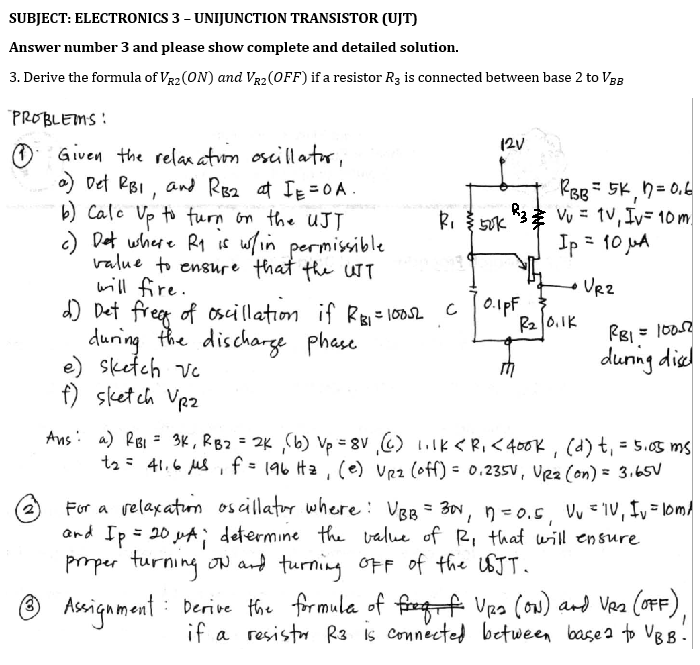 SUBJECT: ELECTRONICS 3 – UNIJUNCTION TRANSISTOR (UJT)
Answer number 3 and please show complete and detailed solution.
3. Derive the formula of V_R2(ON) and V_R2(OFF) if a resistor R3 is connected between base 2 to V_BB
PROBLEMS:
① Given the relaxation oscillator,
a) Det RB1, and RB2 at IE = 0A.
b) Calc Vp to turn on the UJT
c) Det where R1 is w/in permissible
value to ensure that the UJT
will fire.
d) Det freq of oscillation if RB1 = 100Ω
during the discharge phase
e) sketch Vc
f) sketch VR2
12V
R1 50K
R3
C 0.1µF
R2 0.1K
VR2
RBB = 5K, η = 0.6
Vv = 1V, Iv = 10m
Ip = 10 µA
RB1 = 100Ω
during disch
Ans: a) RB1 = 3K, RB2 = 2K, (b) Vp = 8V, (c) 1.1K < R1 < 400K, (d) t1 = 5.05 ms
t2 = 41.6 µs, f = 196 Hz, (e) VR2 (off) = 0.235V, VR2 (on) = 3.65V
② For a relaxation oscillator where: VBB = 30V, η = 0.5, Vv = 1V, Iv = 10mA
and Ip = 20 µA; determine the value of R1 that will ensure
proper turning ON and turning OFF of the UJT.
③ Assignment: Derive the formula of VR2 (ON) and VR2 (OFF),
if a resistor R3 is connected between base2 to VBB.